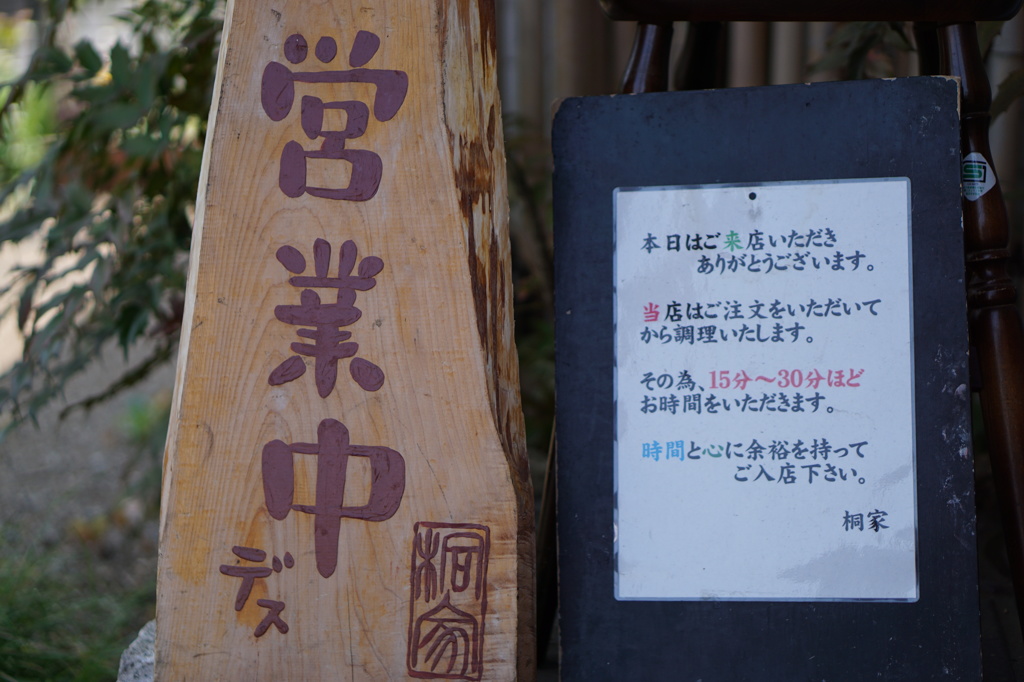 営業中
デス
桐家
本日はご来店いただき
ありがとうございます。
当店はご注文をいただいて
から調理いたします。
その為、15分〜30分ほど
お時間をいただきます。
時間と心に余裕を持って
ご入店下さい。
桐家